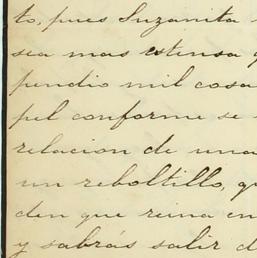 to, pues Suzanita
sea mas estensa q
pendio mil cosa
pel conforme se
relacion de una
un reboltillo, qu
den que reina en
y sabrás salir d